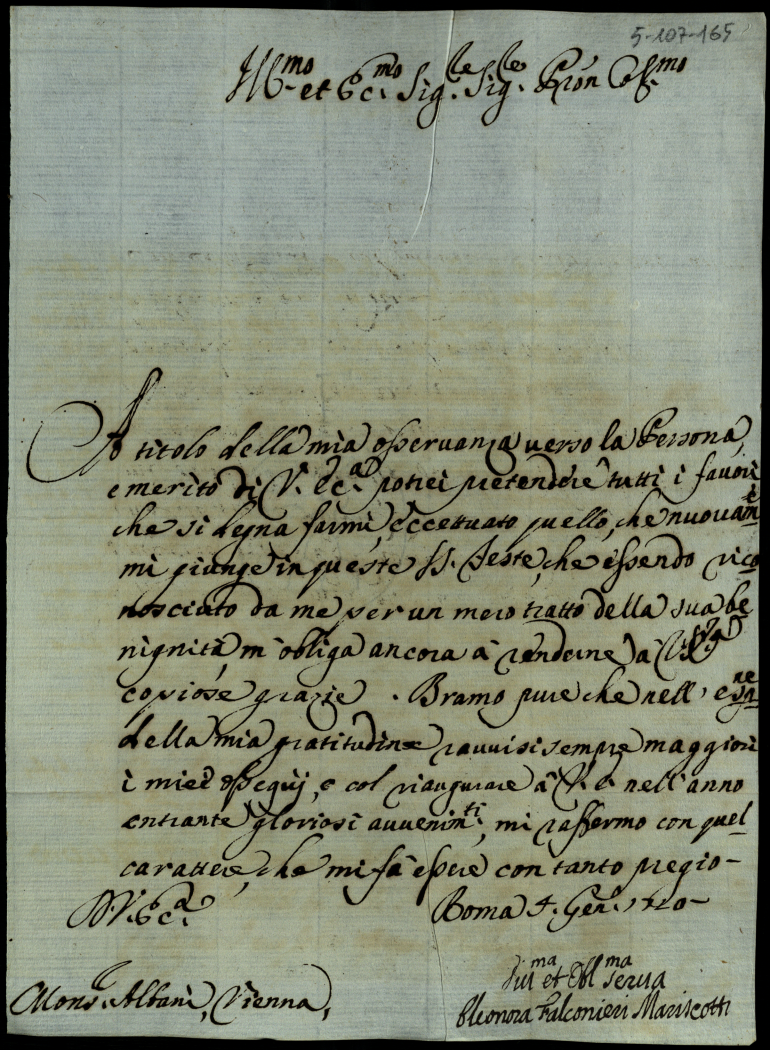 5-107-165
Ill.mo et Ecc.mo Sig.re Sig.re Pron Oss.mo
A titolo della mia osservanza verso la Persona,
e merito di V. Ecc.a potrei pretendere tutti i favori
che si degna farmi, eccettuato quello, che nuovam.e
mi giunge in queste SS. Feste, che essendo rico
nosciuto da me per un mero tratto della sua be
nignità, m'obliga ancora à renderne à
copiose grazie. Bramo pure che nell'
della mia gratitudine ravvisi sempre maggiori
i miei ossequij, e col riaugurare à V. E. nell'anno
entrante gloriosi avvenim.ti, mi raffermo con quel
carattere, che mi fà essere con tanto pregio-
D. V. Ecc.a
Roma Gen.
Mons. Albani, Vienna,
Div.ma et Obl.ma serva
Eleonora Falconieri Mariscotti